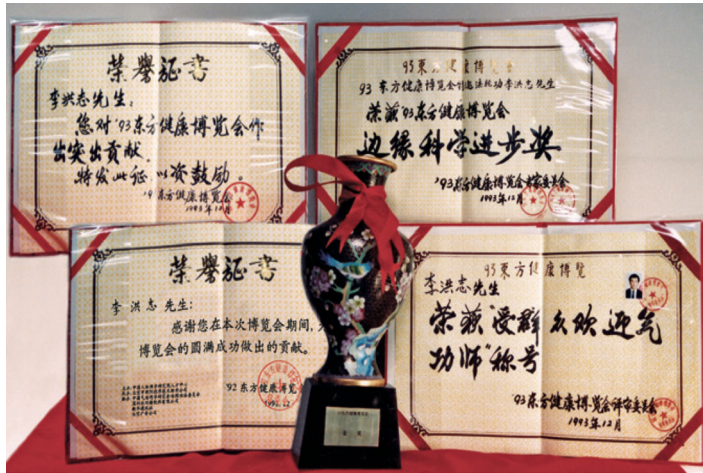 荣誉证书
李洪志先生：
您对'93东方健康博览会作
出突出贡献，
特发此证，以资鼓励。
'93东方健康博览会
1993年12月
93東方健康博览会
93东方健康博览会创造法轮功李洪志先生
荣获'93东方健康博览会
边缘科学进步奖
'93东方健康博览会专家委员会
1993年12月
荣誉证书
李洪志 先生：
感谢您在本次博览会期间，
博览会的圆满成功做出的贡献。
'92东方健康博览
1992.12
93東方健康博览
李洪志先生
荣获"受群众欢迎气
功师"称号
'93东方健康博览会评审委员会
1993年12月